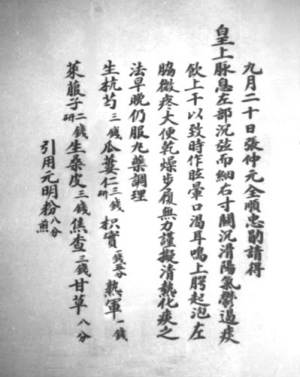 九月二十日張仲元全順忠酌請得
皇上脉息左部沉弦而細右寸關沉滑陽氣鬱遏痰
飲上干以致時作眩暈口渴耳鳴上腭起泡左
脇微疼大便乾燥步履無力謹擬清熱化痰之
法早晚仍服丸藥調理
生杭芍三錢瓜蔞仁三錢研枳實錢五分熟軍一錢
萊菔子二錢研生桑皮三錢焦查三錢甘草八分
引用元明粉八分煎